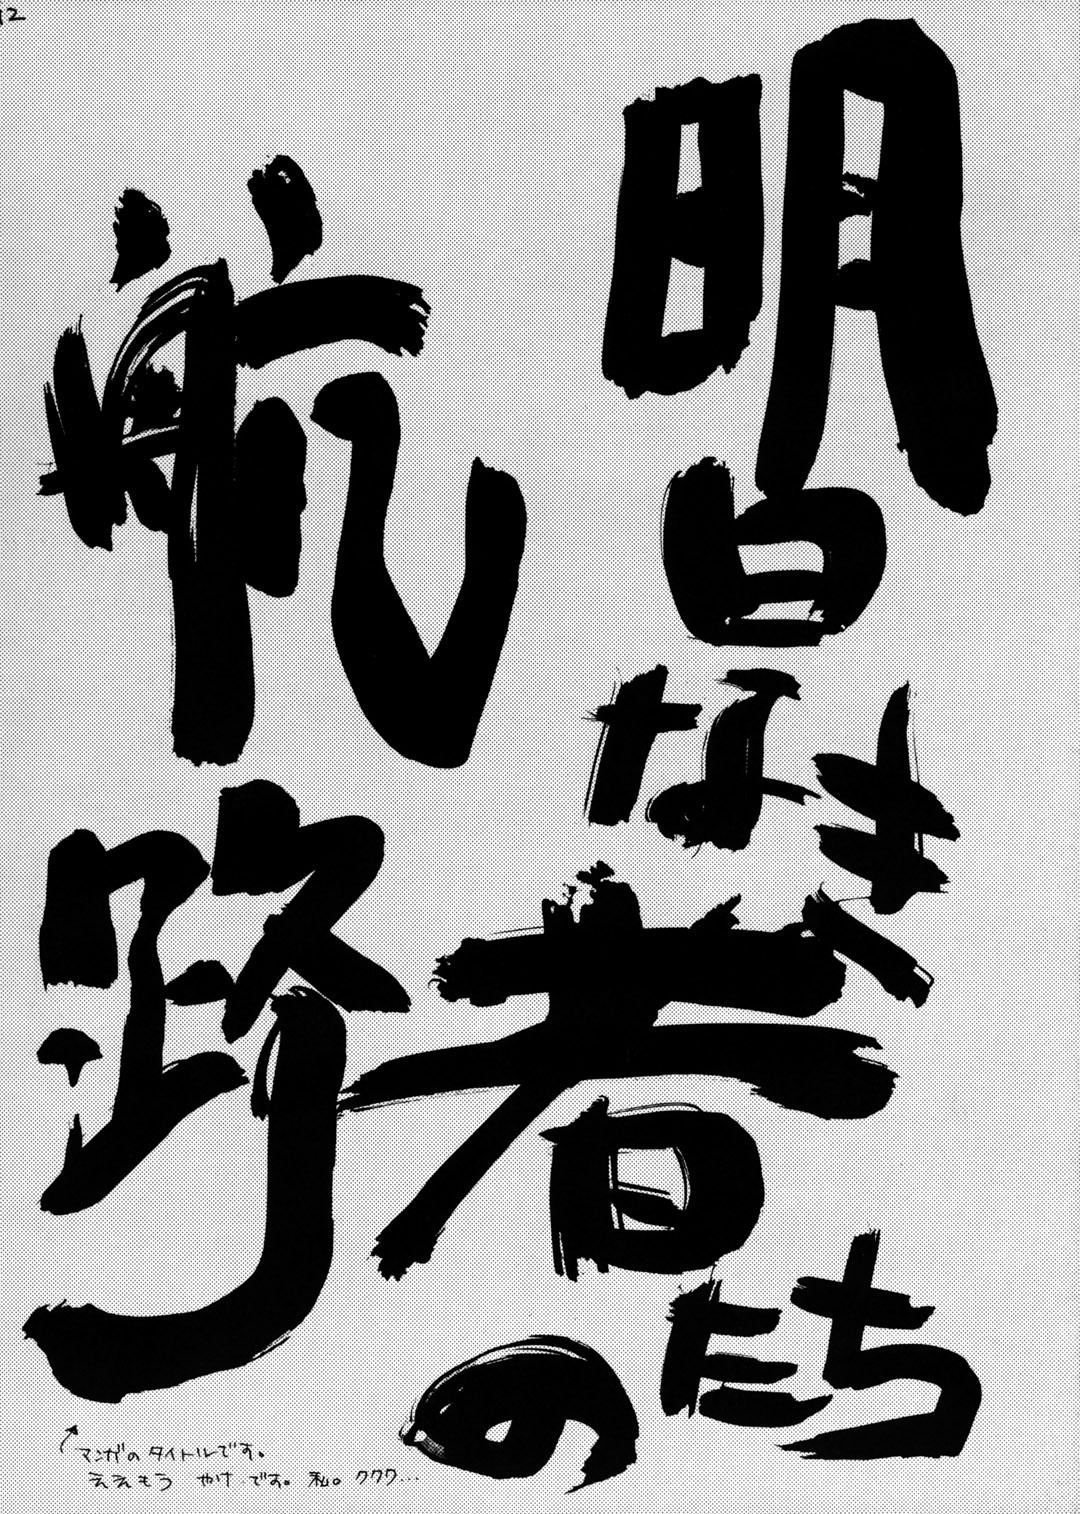 明日なき者たちの
野
マンガのタイトルです。
ええもう やけです。私。ククク…